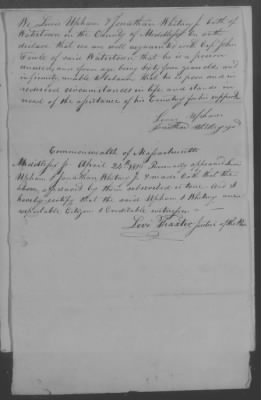 We Amos Upham & Jonathan Whitney Jr both of
Watertown in the County of Middlesex on oath
declare that we are well acquainted with Capt John
of said Watertown that he is a pension
and from age being sixty four years old, and
infirmity unable to labour that he is poor and in
reduced circumstances in life, and stands in
need of the assistance of his Country for his support
Upham
Jonathan Whitney Jr
Commonwealth of Massachusetts
Middlesex ss April 24th Personally appeared
Upham & Jonathan Whitney Jr & made Oath that the
above by them subscribed is true. And I
hereby certify that the said Upham & Whitney are
respectable Citizens & Creditable witnesses
Levi Thaxter Justice of the Peace